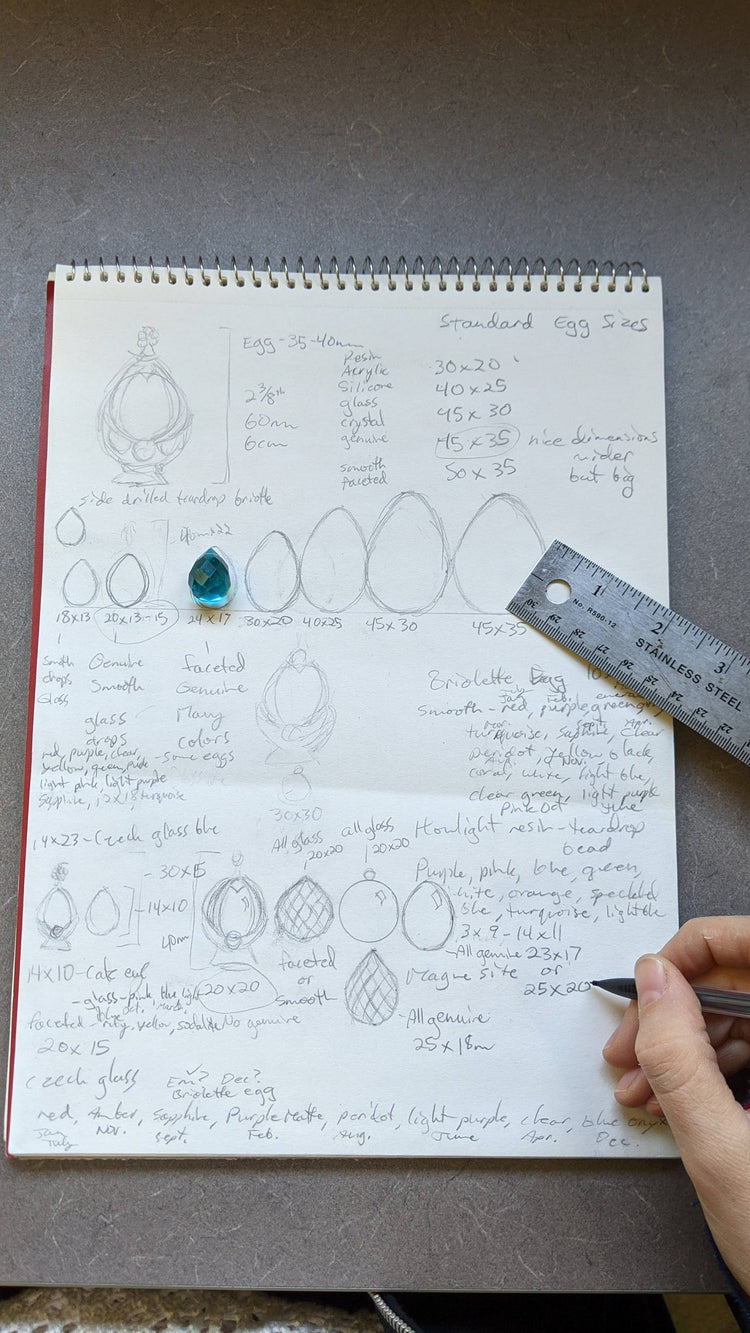 Standard Egg Sizes
Egg - 35-40mm
Resin
Acrylic
Silicone
glass
crystal
genuine
smooth
faceted
2 3/8th
60mm
6cm
30x20
40x25
45x30
45x35 nice dimensions
wider
but big
50x35
side drilled teardrop briolte
18x13 20x13-15 24x17 30x20 40x25 45x30 45x35
drops
Glass
Genuine
Smooth
glass
drops
faceted
Genuine
Many
colors
red, purple, clear,
yellow, green, pink - some eggs
light pink, light purple
Sapphire, 12x18 turquoise
30x30
Briolette Egg
Smooth - red, purple, green
Jan. Feb.
turquoise, sapphire, clear
Sept. Apr.
peridot, yellow, black,
Aug. Nov.
coral, white, light blue,
clear green, light purple
Pink Oct June
14x23 - Czech glass blue
All glass all glass
20x20 20x20
Howlight resin - teardrop
bead
Purple, pink, blue, green,
white, orange, speckled
blue, turquoise, light
3x9 - 14x11
- All genuine 23x17
or
25x20
Magnesite
- 30x15
- 14x10
40m
20x20
faceted
or
smooth
No genuine
- All genuine
25x18m
14x10 -
- glass - pink, blue, light
faceted - ruby, yellow, sodalite
20x15
Czech glass
Em? Dec?
Briolette egg
red, Amber, Sapphire, Purple Matte, peridot, light purple, clear, blue onyx
Jan Nov. Sept. Feb. Aug. June Apr. Dec.
July
1 2 3
No. R590-12
STAINLESS STEEL
30 29 28 27 26 25 24 23 22